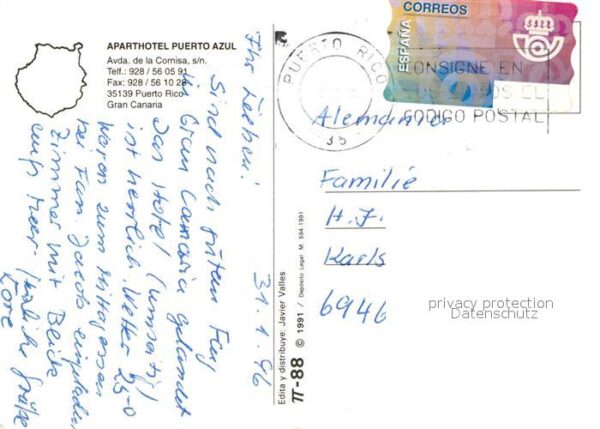 APARTHOTEL PUERTO AZUL
Avda. de la Cornisa, s/n.
Telf.: 928 / 56 05 91
Fax: 928 / 56 10 28
35139 Puerto Rico
Gran Canaria
Ihr Lieben!
31.1.96
Sind nach gutem Flug
in Gran Canaria gelandet
Das Hotel
ist herrlich. Wetter 25-0
Waren zum Mittagessen
bei Fam. Jacobs eingeladen
Zimmer mit Blick
aufs Meer. Herzliche Grüße
Lore
Edita y distribuye: Javier Valles
π-88 © 1991 / Depósito Legal: M. 594-1991
CORREOS
ESPAÑA
PUERTO RICO
35
CONSIGNE EN
EL
CODIGO POSTAL
Alemania
Familie
H. J.
Karls
6946
privacy protection
Datenschutz